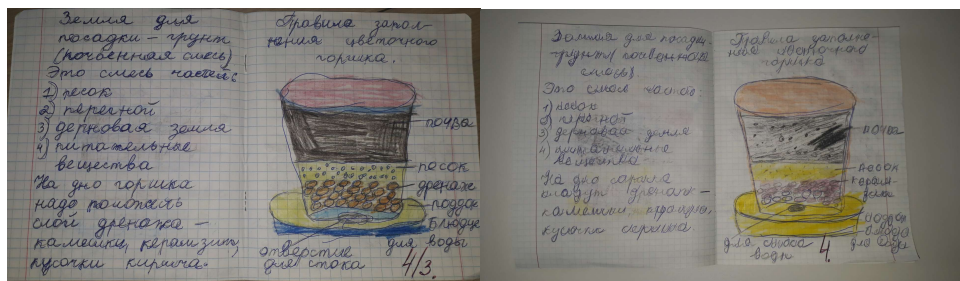 Земля для
посадки – грунт
(почвенная смесь)
Это смесь частей:
1) песок
2) перегной
3) дерновая земля
4) питательные
вещества
На дно горшка
надо положить
слой дренажа –
камешки, керамзит,
кусочки кирпича.
Правила запол-
нения цветочного
горшка.
почва
песок
дренаж
поддон
блюдце
для воды
отверстие
для стока
4/3.
Земля для посадки
грунт (почвенная
смесь).
Это смесь частей:
1) песок
2) перегной
3) дерновая земля
4) питательные
вещества
На дно горшка
кладут дренаж –
камешки,
кусочки кирпича.
Правила заполне-
ния цветочного
горшка
почва
песок
керам-
зит
поддон
для воды
для стока
воды
4.